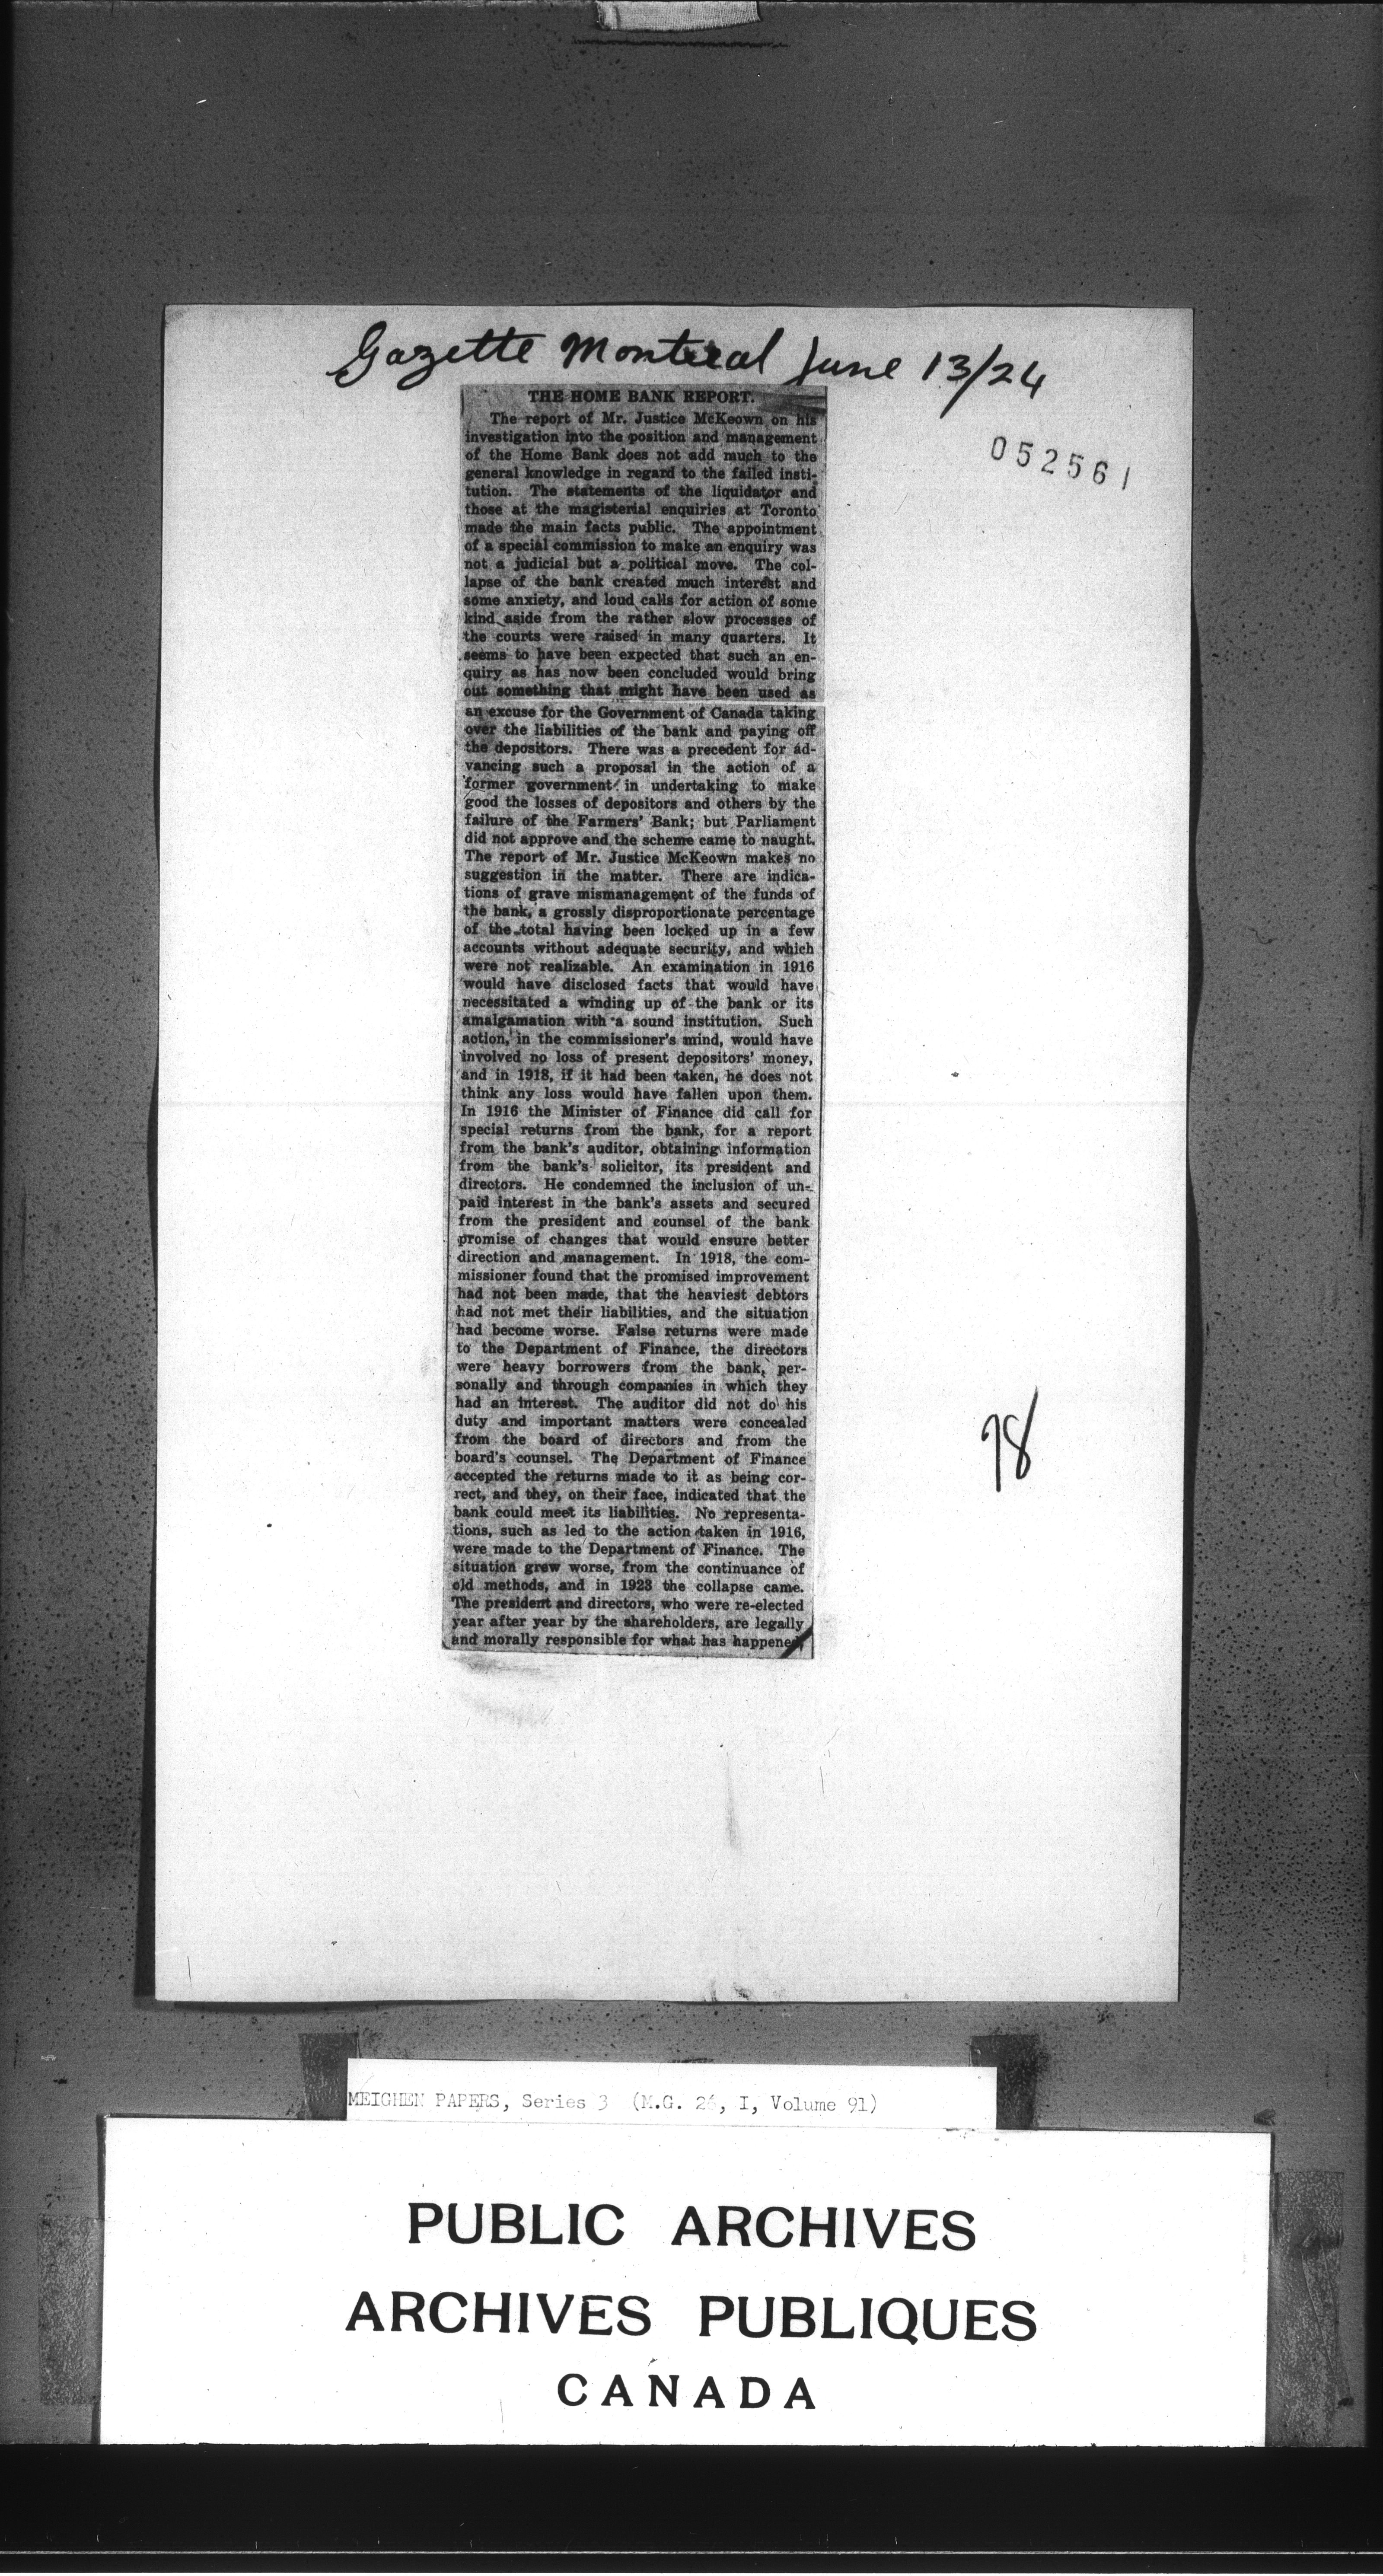 Gazette Montreal June 13/24
052561
THE HOME BANK REPORT.
The report of Mr. Justice McKeown on his
investigation into the position and management
of the Home Bank does not add much to the
general knowledge in regard to the failed insti-
tution. The statements of the liquidator and
those at the magisterial enquiries at Toronto
made the main facts public. The appointment
of a special commission to make an enquiry was
not a judicial but a political move. The col-
lapse of the bank created much interest and
some anxiety, and loud calls for action of some
kind aside from the rather slow processes of
the courts were raised in many quarters. It
seems to have been expected that such an en-
quiry as has now been concluded would bring
out something that might have been used as
an excuse for the Government of Canada taking
over the liabilities of the bank and paying off
the depositors. There was a precedent for ad-
vancing such a proposal in the action of a
former government in undertaking to make
good the losses of depositors and others by the
failure of the Farmers' Bank; but Parliament
did not approve and the scheme came to naught.
The report of Mr. Justice McKeown makes no
suggestion in the matter. There are indica-
tions of grave mismanagement of the funds of
the bank, a grossly disproportionate percentage
of the total having been locked up in a few
accounts without adequate security, and which
were not realizable. An examination in 1916
would have disclosed facts that would have
necessitated a winding up of the bank or its
amalgamation with a sound institution. Such
action, in the commissioner's mind, would have
involved no loss of present depositors' money,
and in 1918, if it had been taken, he does not
think any loss would have fallen upon them.
In 1916 the Minister of Finance did call for
special returns from the bank, for a report
from the bank's auditor, obtaining information
from the bank's solicitor, its president and
directors. He condemned the inclusion of un-
paid interest in the bank's assets and secured
from the president and counsel of the bank
promise of changes that would ensure better
direction and management. In 1918, the com-
missioner found that the promised improvement
had not been made, that the heaviest debtors
had not met their liabilities, and the situation
had become worse. False returns were made
to the Department of Finance, the directors
were heavy borrowers from the bank, per-
sonally and through companies in which they
had an interest. The auditor did not do his
duty and important matters were concealed
from the board of directors and from the
board's counsel. The Department of Finance
accepted the returns made to it as being cor-
rect, and they, on their face, indicated that the
bank could meet its liabilities. No representa-
tions, such as led to the action taken in 1916,
were made to the Department of Finance. The
situation grew worse, from the continuance of
old methods, and in 1923 the collapse came.
The president and directors, who were re-elected
year after year by the shareholders, are legally
and morally responsible for what has happened,
78
MEIGHEN PAPERS, Series 3 (M.G. 26, I, Volume 91)
PUBLIC ARCHIVES
ARCHIVES PUBLIQUES
CANADA